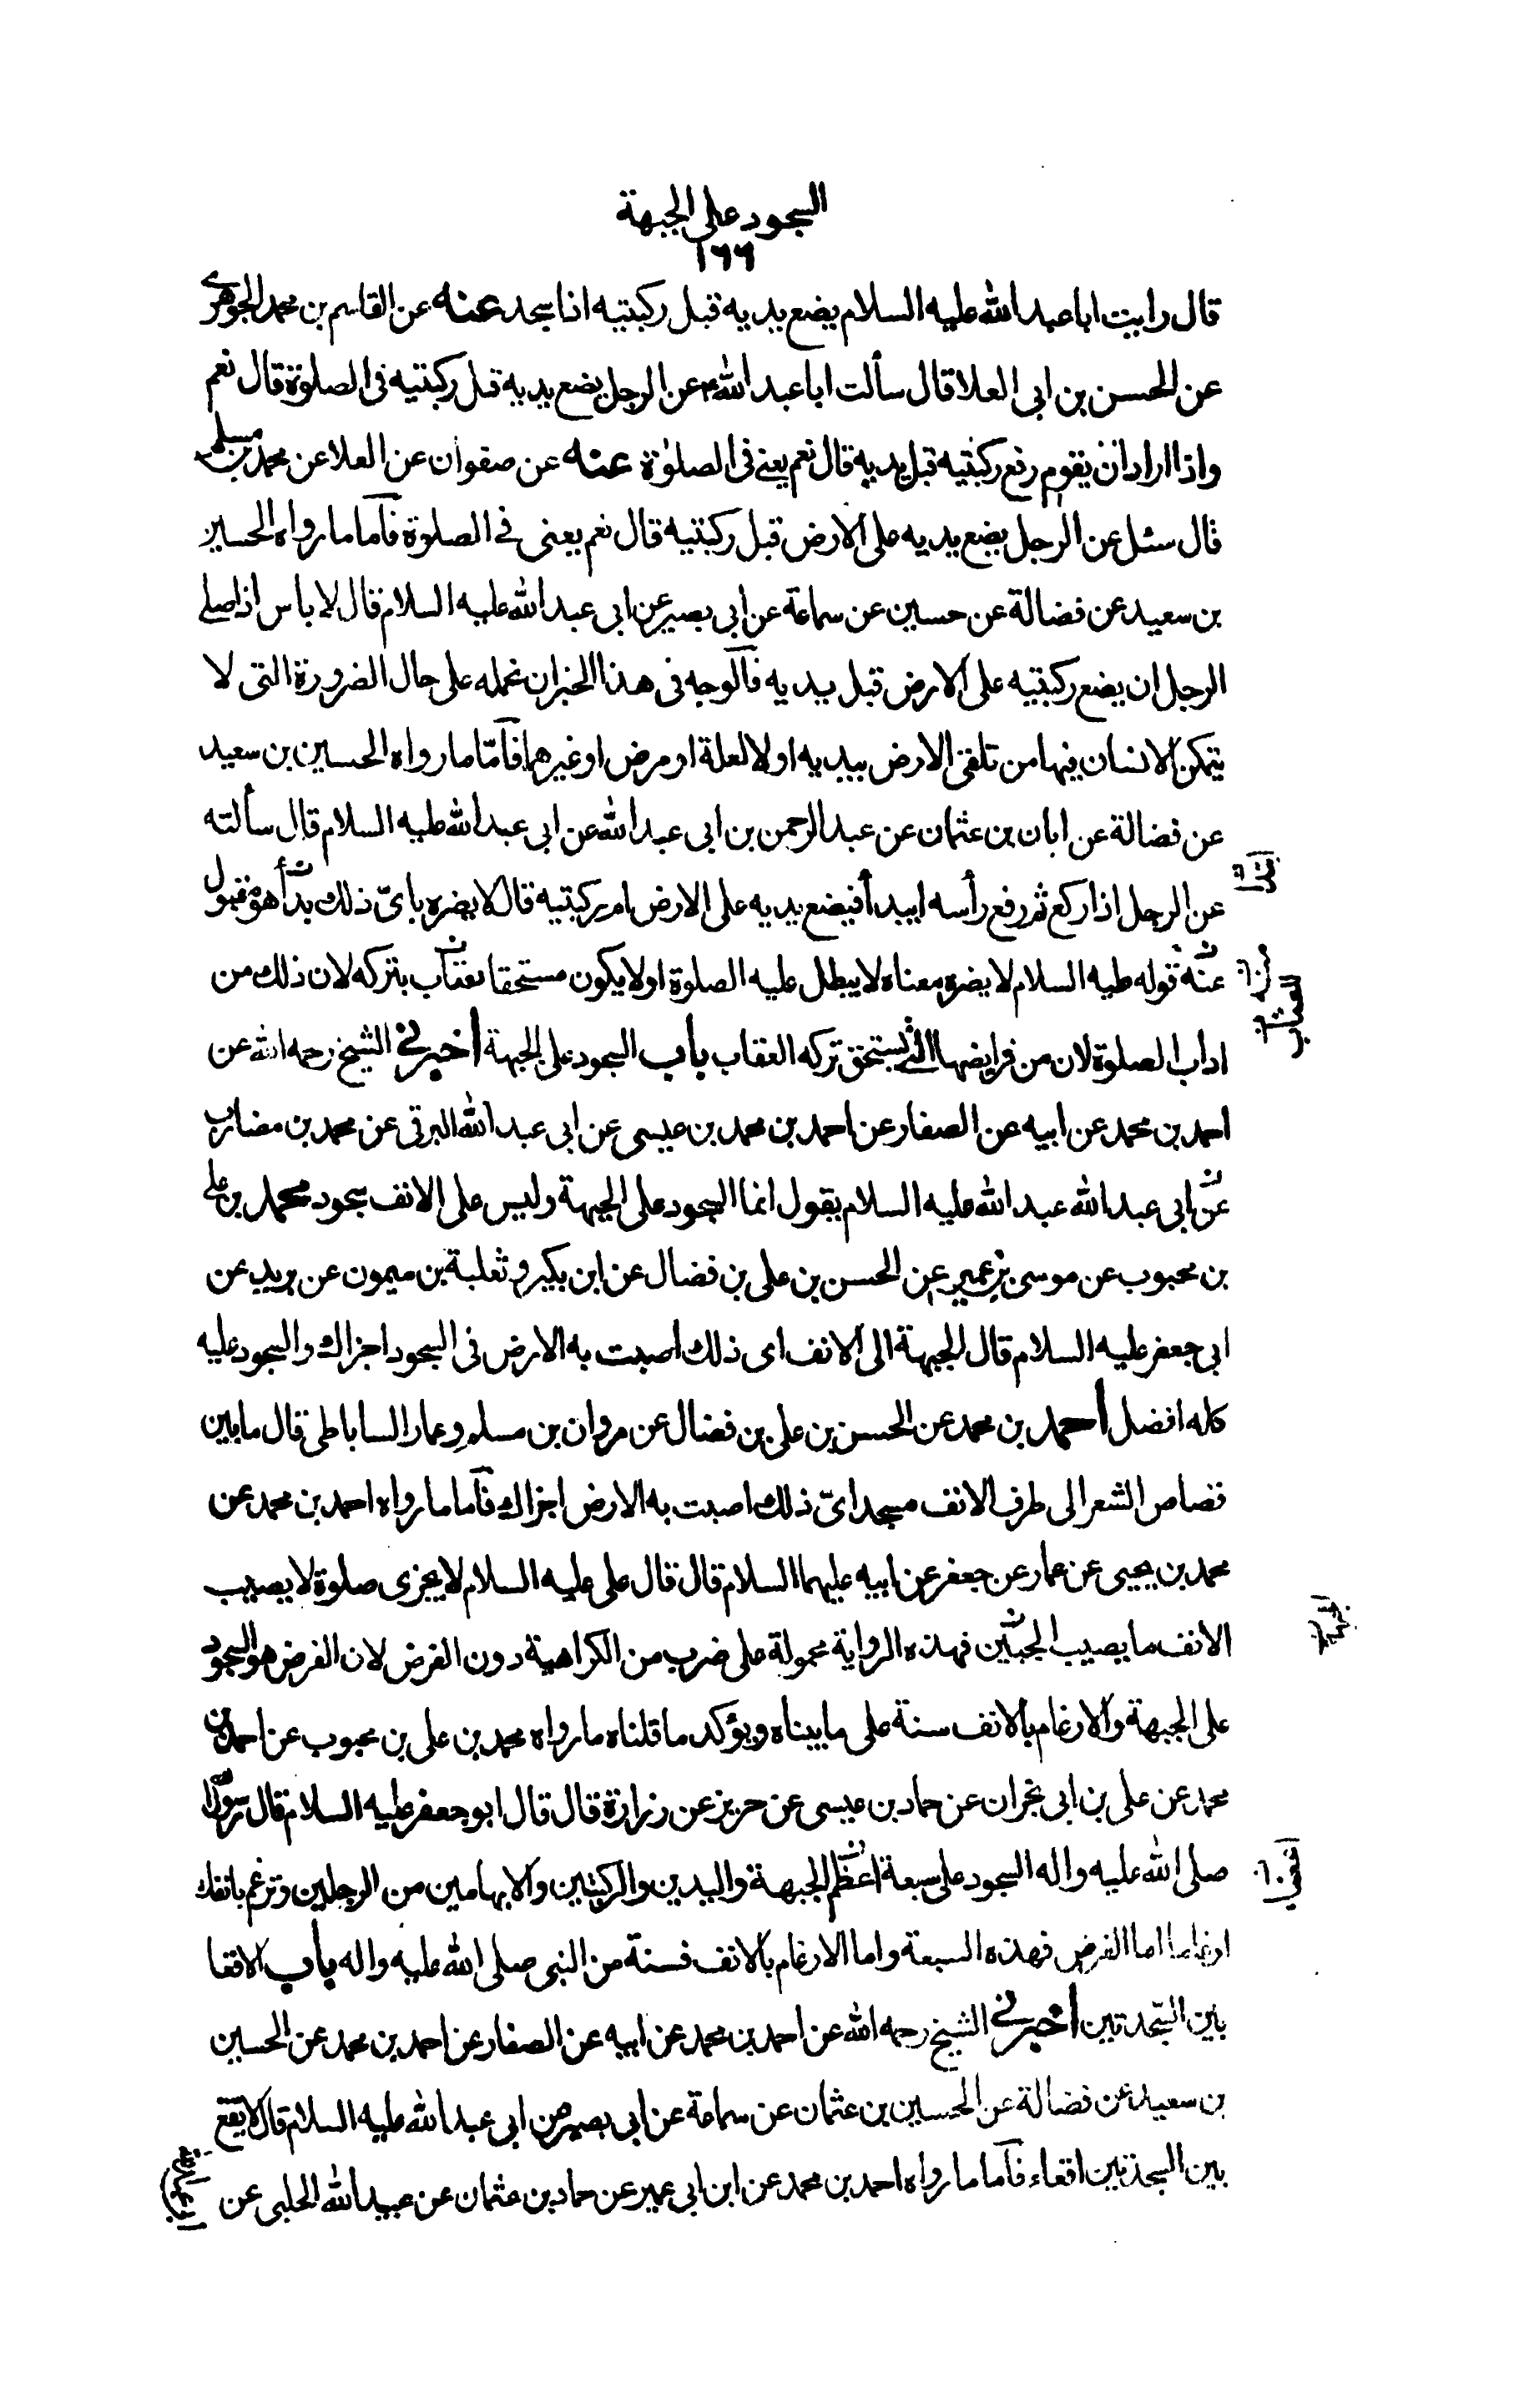 السجود على الجبهة
١٦٦
قال رايت ابا عبد الله عليه السلام يضع يديه قبل ركبتيه اذا سجد عنه عن القاسم بن محمد الجوهرى
عن الحسن بن ابى العلا قال سألت ابا عبد الله ع عن الرجل يضع يديه قبل ركبتيه فى الصلوة قال نعم
واذا اراد ان يقوم رفع ركبتيه قبل يديه قال نعم يعنى فى الصلوٰة عنه عن صفوان عن العلا عن محمد بن مسلم
قال سئل عن الرجل يضع يديه على الارض قبل ركبتيه قال نعم يعنى فى الصلوة فآما ما رواه الحسين
بن سعيد عن فضالة عن حسين عن سماعة عن ابى بصير عن ابى عبد الله عليه السلام قال لا باس اذا صلى
الرجل ان يضع ركبتيه على الارض قبل يديه فآلوجه فى هذا الخبر ان نحمله على حال الضرورة التى لا
يتمكن الانسان فيها من تلقى الارض بيديه اولا لعلة او مرض او غيرهما فآمّا ما رواه الحسين بن سعيد
عن فضالة عن ابان بن عثمان عن عبد الرحمن بن ابى عبد الله عن ابى عبد الله عليه السلام قال سألته
عن الرجل اذا ركع ثم رفع رأسه ايبدأ فيضع يديه على الارض ام ركبتيه قال لا يضره باىّ ذلك بدأ هو مقبول
عنه قوله عليه السلام لا يضره معناه لا يبطل عليه الصلوة اولا يكون مستحقا بعقاب بتركه لان ذلك من
اداب الصلوة لان من فرايضها التى يستحق تركه العقاب باب السجود على الجبهة أخبرنى الشيخ رحمه الله عن
احمد بن محمد عن ابيه عن الصفار عن احمد بن محمد بن عيسى عن ابى عبد الله البرقى عن محمد بن مضارب
عن ابى عبد الله عبد الله عليه السلام يقول انما السجود على الجبهة وليس على الانف سجود محمد بن على
بن محبوب عن موسى بن عمير عن الحسن بن على بن فضال عن ابن بكير و ثعلبة بن ميمون عن بريد عن
ابى جعفر عليه السلام قال الجبهة الى الانف اى ذلك اصبت به الارض فى السجود اجزاك والسجود عليه
كله افضل أحمد بن محمد عن الحسن بن على بن فضال عن مروان بن مسلم وعمار الساباطى قال ما بين
قصاص الشعر الى طرف الانف مسجد اىّ ذلك اصبت به الارض اجزاك فآما ما رواه احمد بن محمد عن
محمد بن يحيى عن عمار عن جعفر عن ابيه عليهما السلام قال قال على عليه السلام لا يجزى صلوة لا يصيب
الانف ما يصيب الجبين فهذه الرواية محمولة على ضرب من الكراهية دون الفرض لان الفرض هو السجود
على الجبهة والارغام بالانف سنة على ما بيناه ويؤكد ما قلناه ما رواه محمد بن على بن محبوب عن احمد بن
محمد عن على بن ابى نجران عن حماد بن عيسى عن حريز عن زرارة قال قال ابو جعفر عليه السلام قال رسول الله
صلى الله عليه واله السجود على سبعة اعظم الجبهة واليدين والركبتين والابهامين من الرجلين وترغم بانفك
ارغاما اما الفرض فهذه السبعة واما الارغام بالانف فسنة من النبى صلى الله عليه واله باب الاقعا
بين السّجدتين أخبرنى الشيخ رحمه الله عن احمد بن محمد عن ابيه عن الصفار عن احمد بن محمد عن الحسين
بن سعيد عن فضالة عن الحسين بن عثمان عن سماعة عن ابى بصير عن ابى عبد الله عليه السلام قال لا تقع
بين السجدتين اقعاء فآما ما رواه احمد بن محمد عن ابن ابى عمير عن حماد بن عثمان عن عبيد الله الحلبى عن